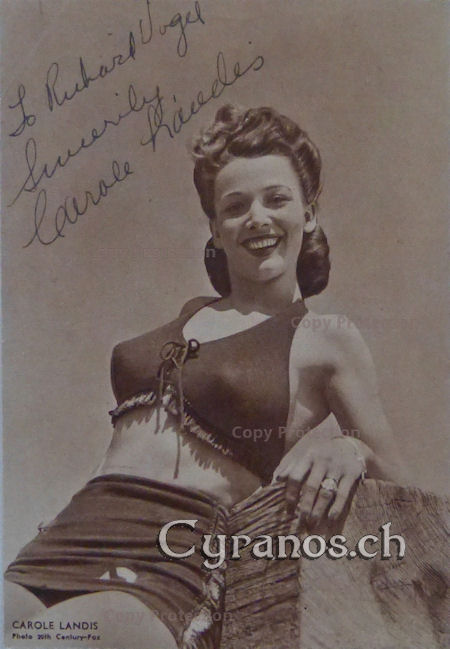 To Richard Vogel
Sincerily
Carole Landis
Copy Protection
Copy Protection
Copy Protection
Cyranos.ch
Copy Protection
CAROLE LANDIS
Photo 20th Century-Fox